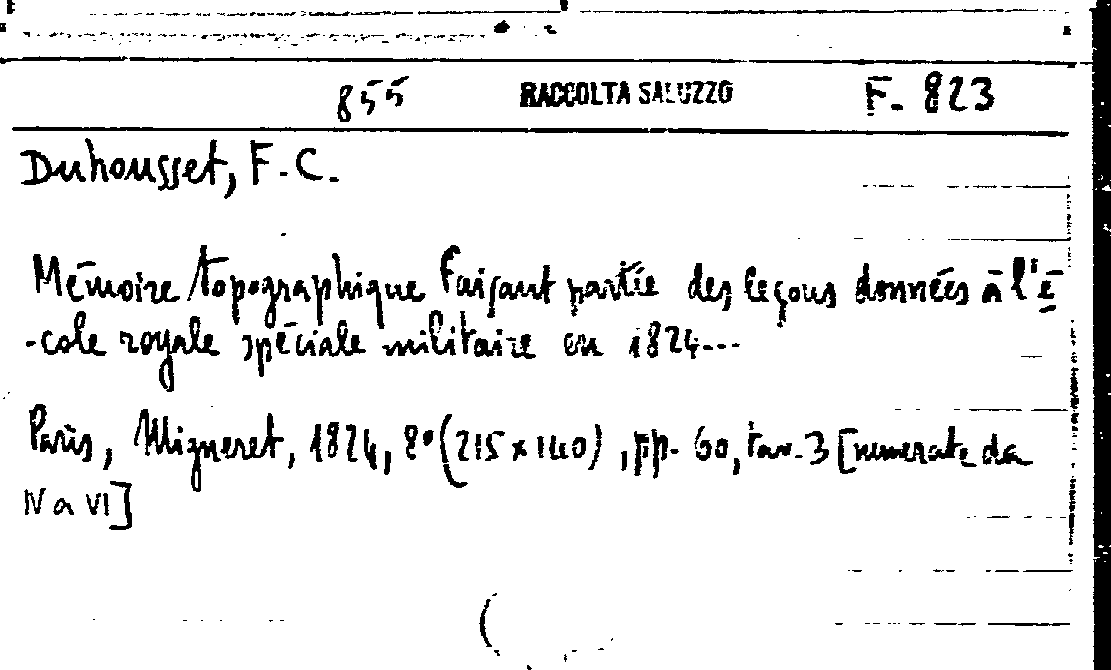 855 RACCOLTA SALUZZO F. 823
Duhousset, F.C.
Mémoire topographique faisant partie des leçons données à l'é
-cole royale spéciale militaire en 1824...
Paris, Migneret, 1824, 8° (215 x 140), pp. 60, tav. 3 [numerate da
IV a VI]